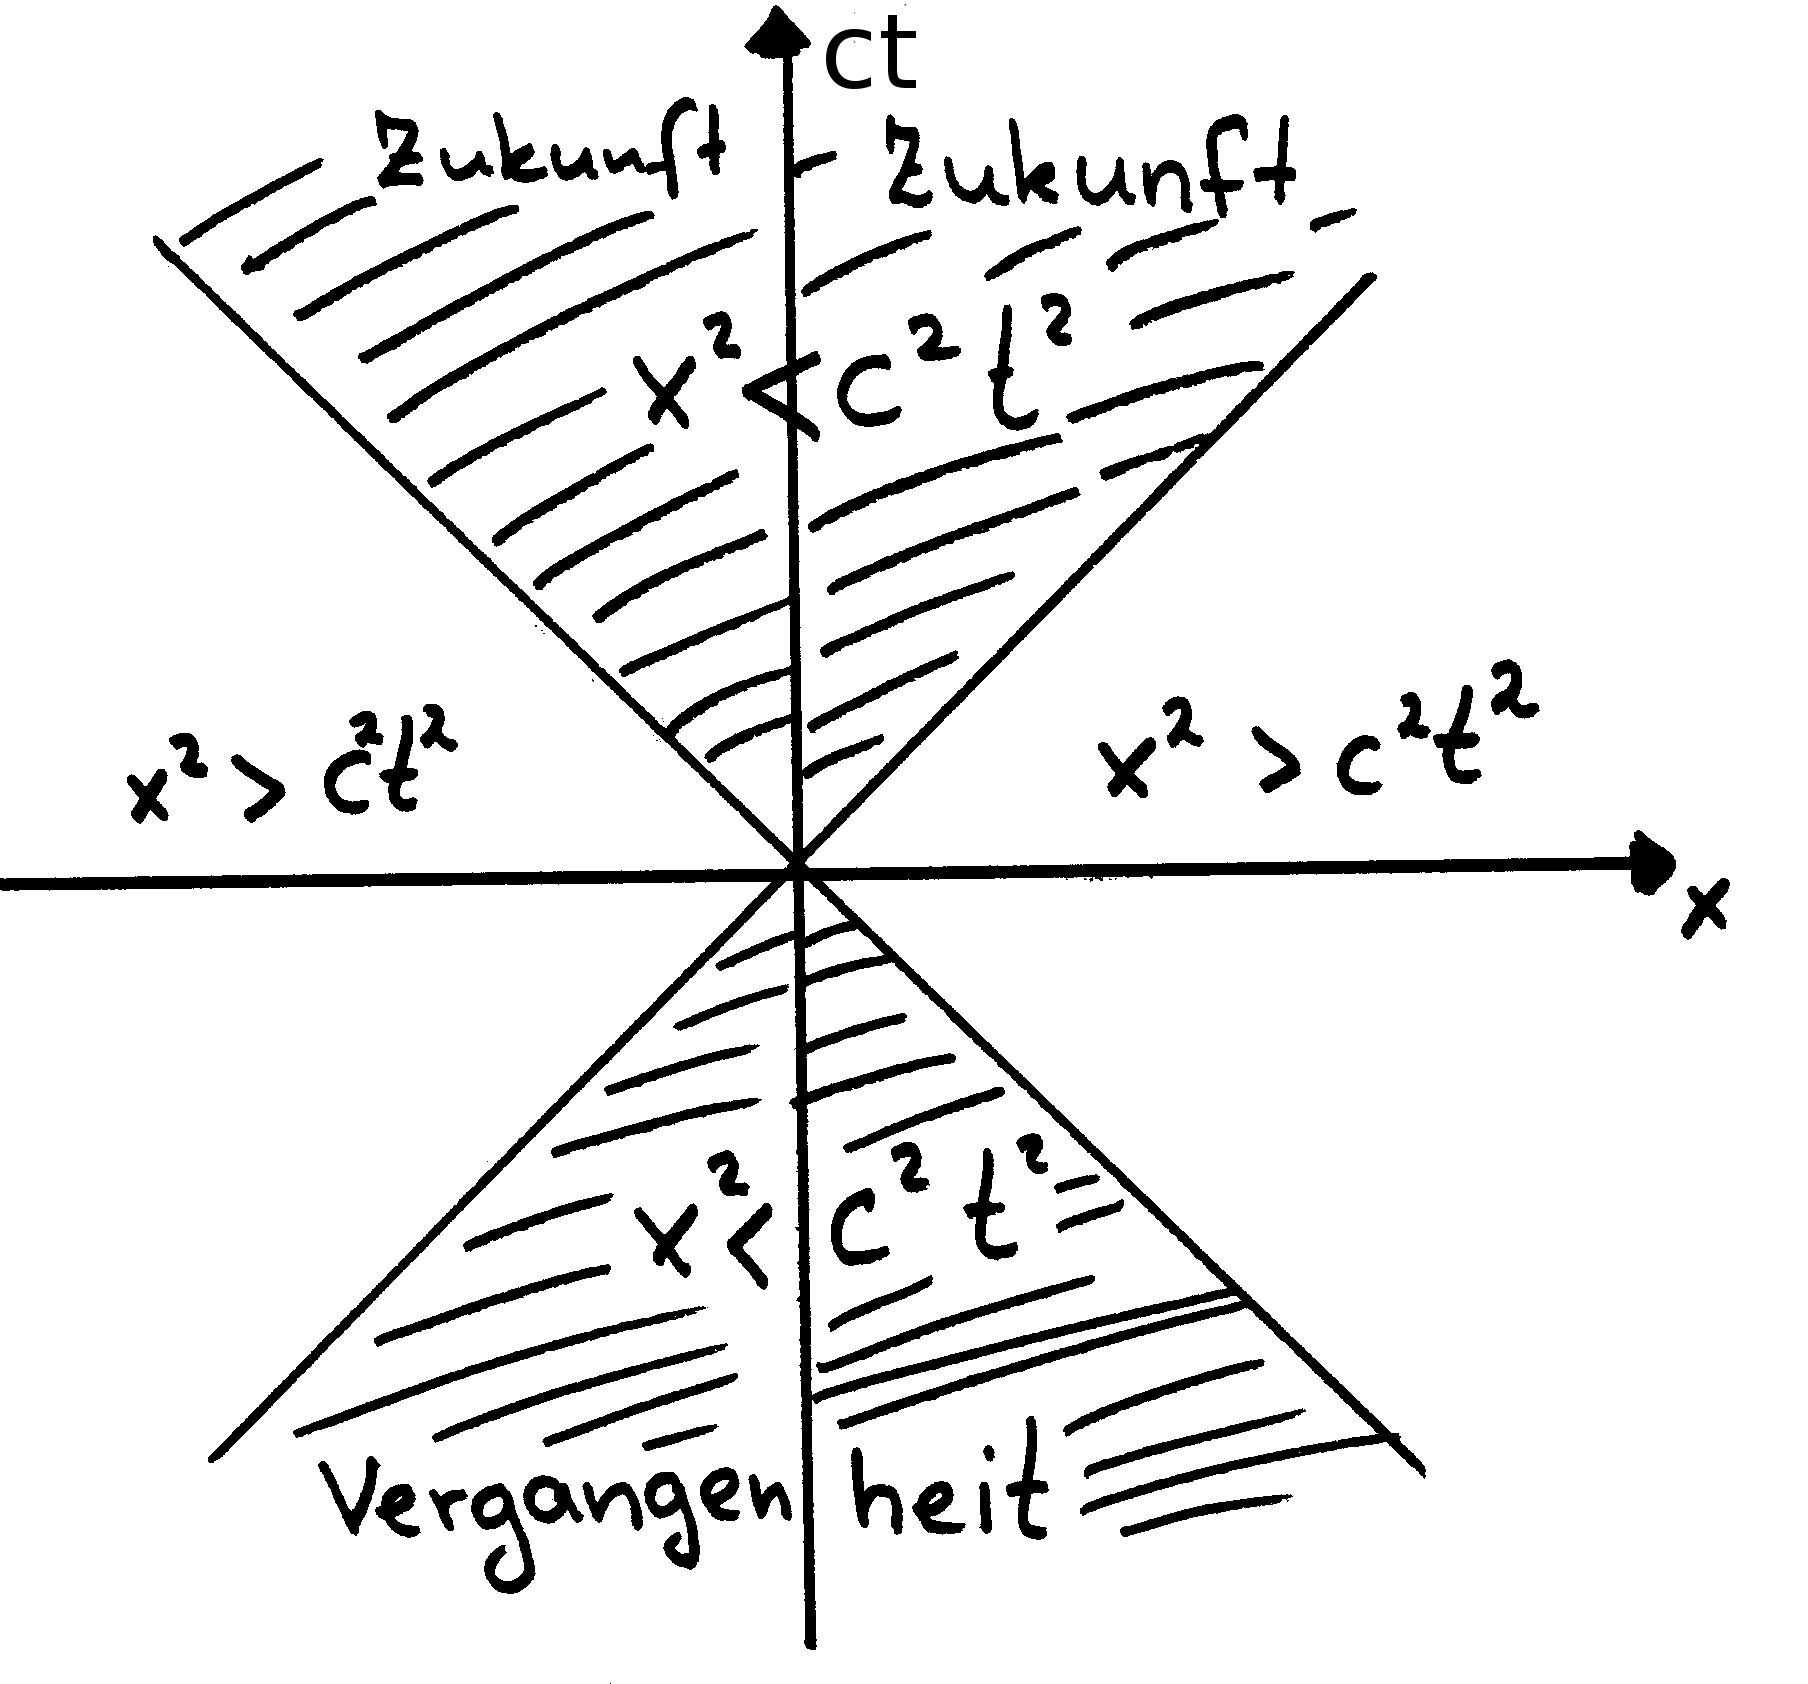 ct
Zukunft Zukunft
x² < c² t²
x² > c²t² x² > c²t²
x
x² < c² t²
Vergangenheit